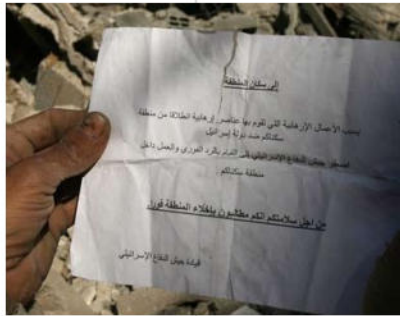 إلى سكان المنطقة
بسبب الأعمال الإرهابية التي تقوم بها عناصر إرهابية انطلاقا من منطقة
سكناكم ضد دولة إسرائيل
جيش الدفاع الإسرائيلي إلى القيام بالرد الفوري والعمل داخل
منطقة سكناكم.
من أجل سلامتكم انكم مطالبون بإخلاء المنطقة فورا.
قيادة جيش الدفاع الإسرائيلي